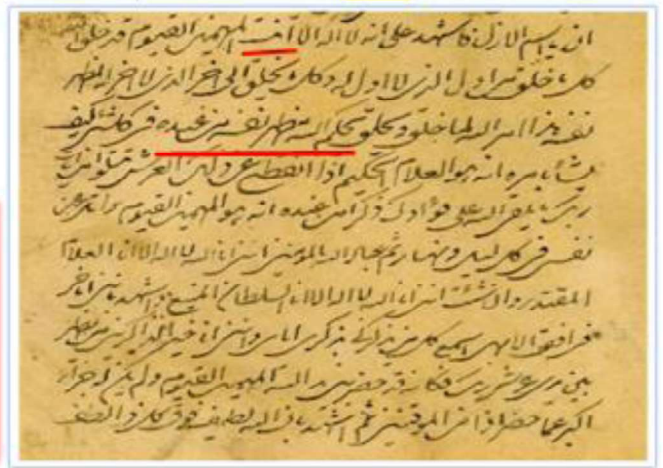 ان يا اسم الازل فاشهد على انه لا اله الا انت المهيمن القيوم قد خلق الله
كل ما خلق من اول الذي لا اول له وكل ما يخلق الى اخر الذي لا اخر له لمظهر
نفسه هذا امر الله لما خلق ويخلق يحكم الله بمظهر نفسه من عنده في كل شيء كيف
يشاء بامره انه هو العلام الحكيم اذا انقطع عن ذلك العرش تتلو من ايات
ربك ما يلقي الله على فؤادك ذكرا من عنده انه هو المهيمن القيوم واتل عن
نفسي في كل ليل ونهار ثم عباد الله المؤمنين انني انا الله لا اله الا انا العلام
المقتدر وان شئت انني انا الله لا اله الا انا السلطان المنيع واشهد بانني انا حي
في افق الابهى اسمع كل من يذكرني بذكري اياي وانني انا خير الذاكرين من ينظر
بين يدي عرش ربك فكانه قد حضر بين يدي الله المهيمن القيوم ولم يكن اجرا
اكبر عما حضر من الموقنين ثم اشهد بان الله لطيف فوق كل ذا الطف